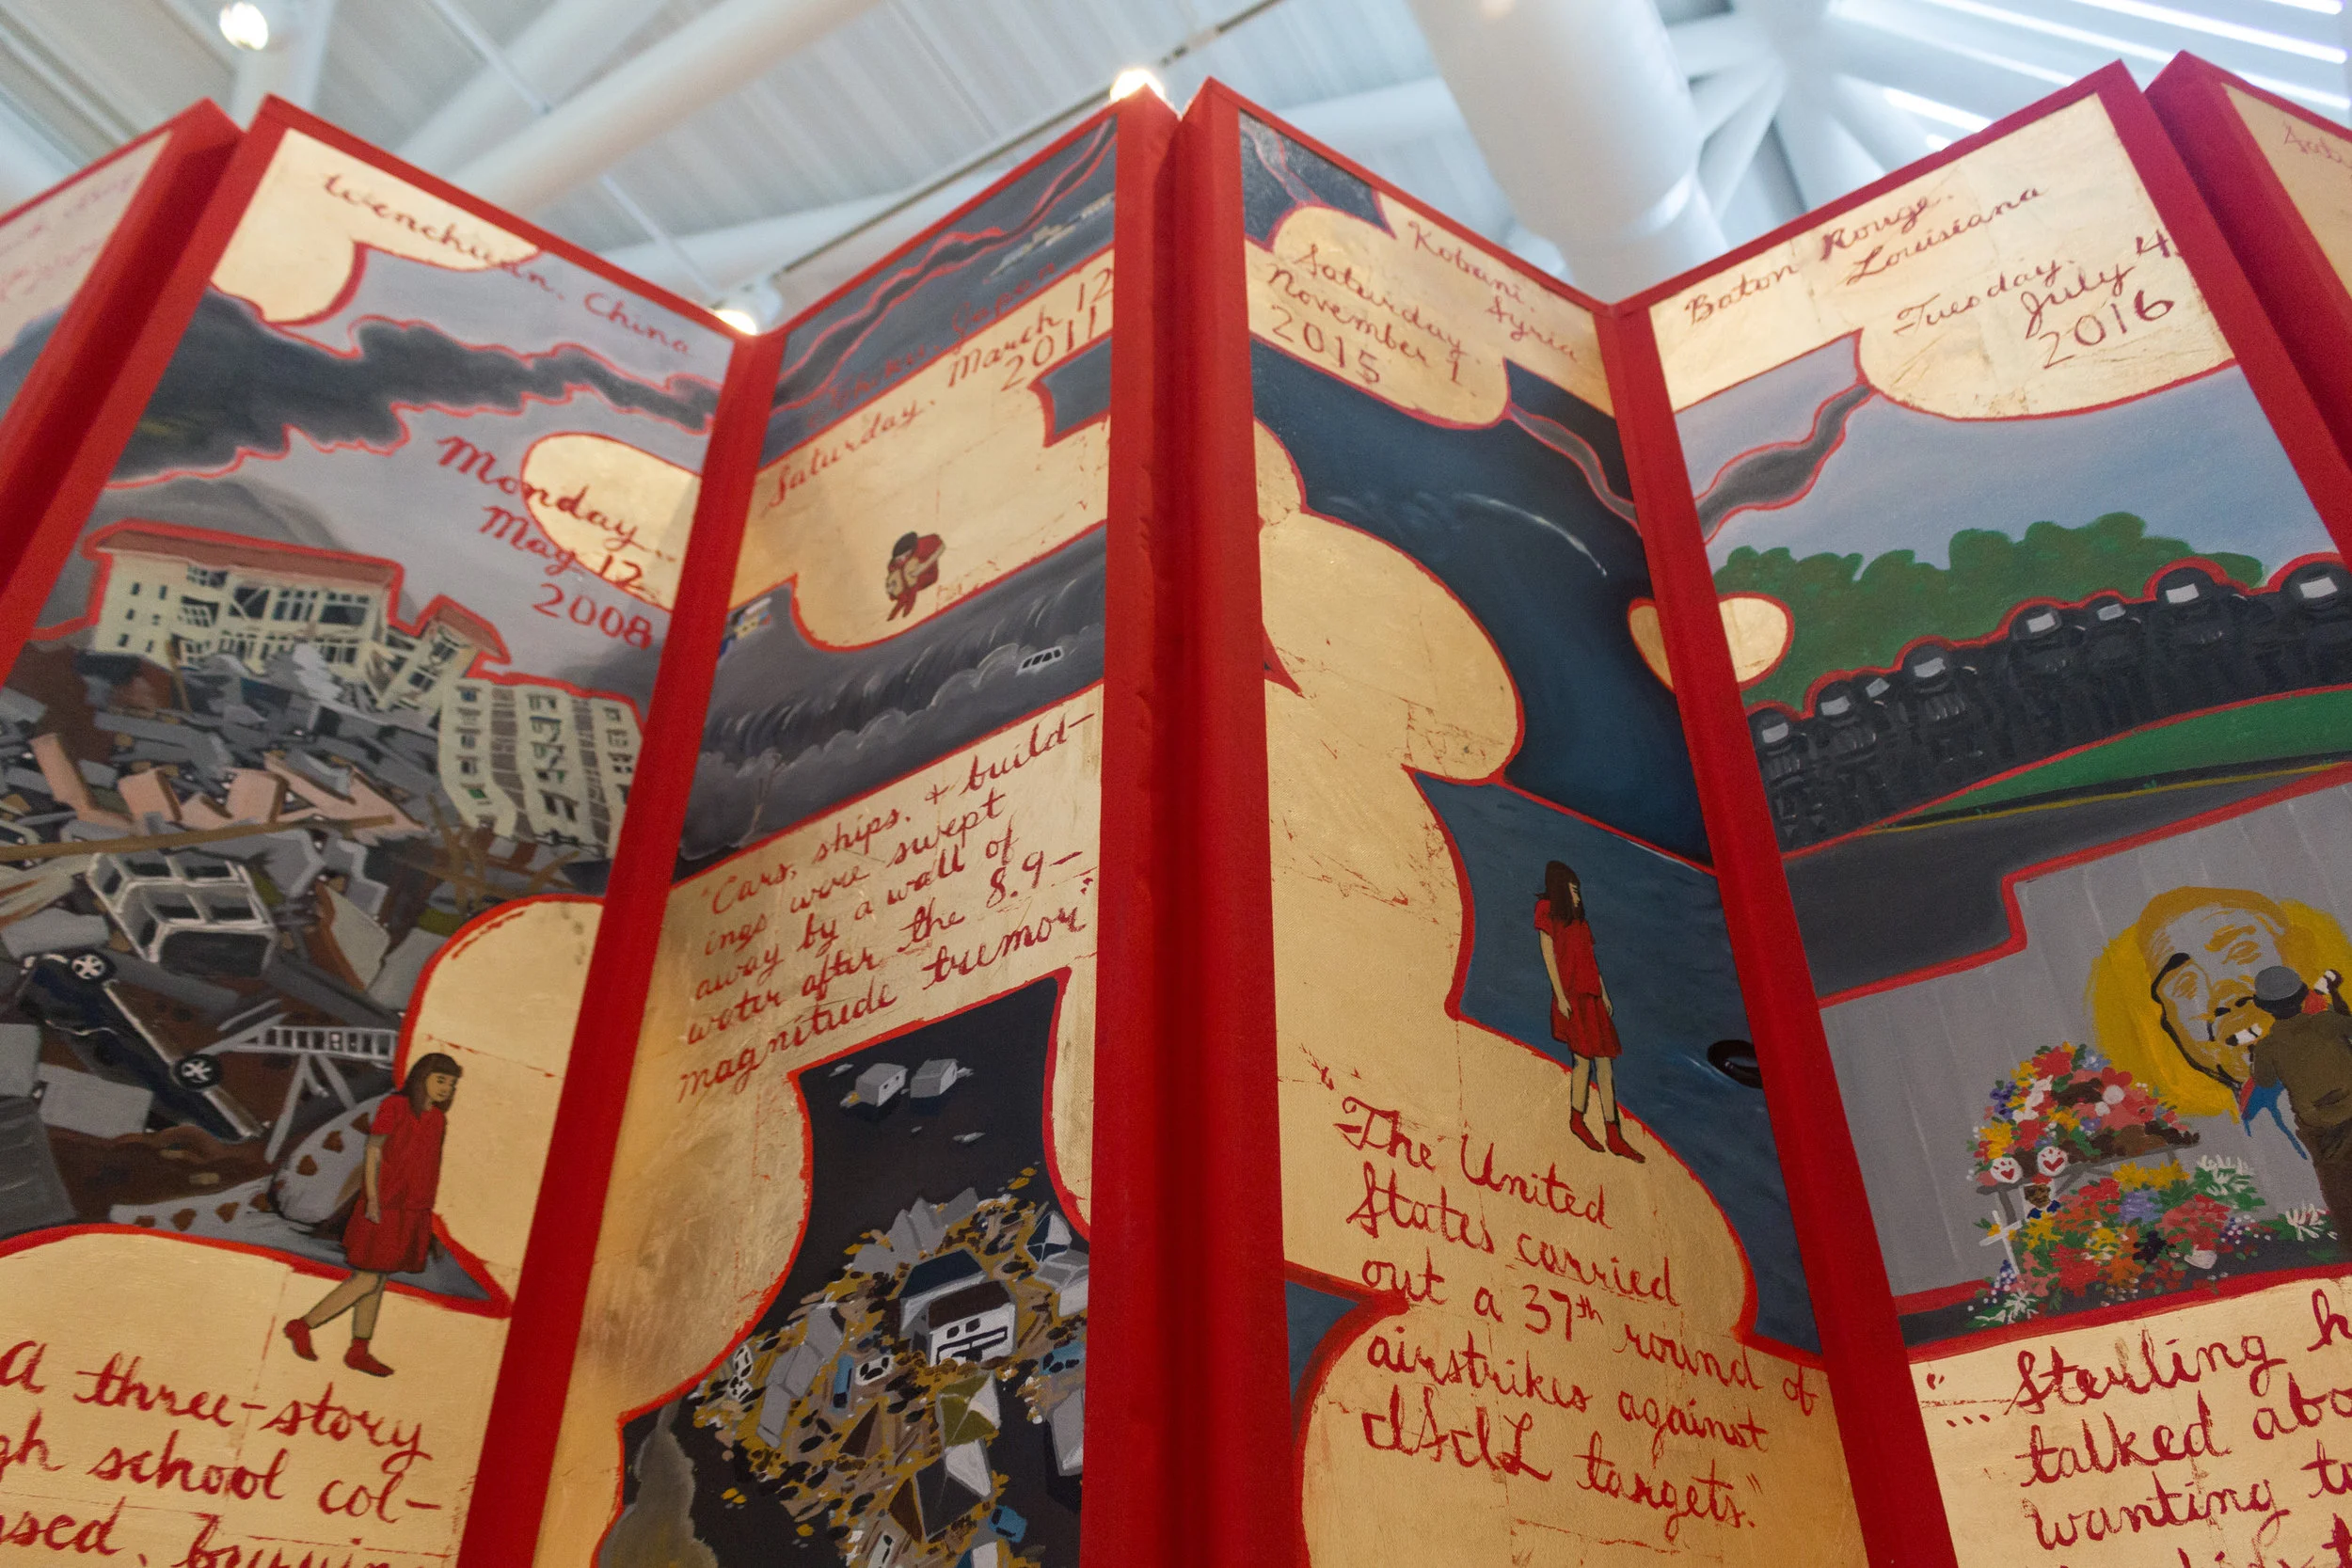 Wenchuan, China
Monday,
May 12,
2008
A three-story
school col-
Japan
March 12
2011
Saturday,
"Cars, ships, + build-
ings were swept
away by a wall of
water after the 8.9-
magnitude tremor"
Kobani,
Syria
Saturday,
November 1,
2015
"The United
States carried
out a 37th round of
airstrikes against
ISIL targets."
Baton Rouge,
Louisiana
Tuesday,
July 4,
2016
"... Sterling
talked
wanting